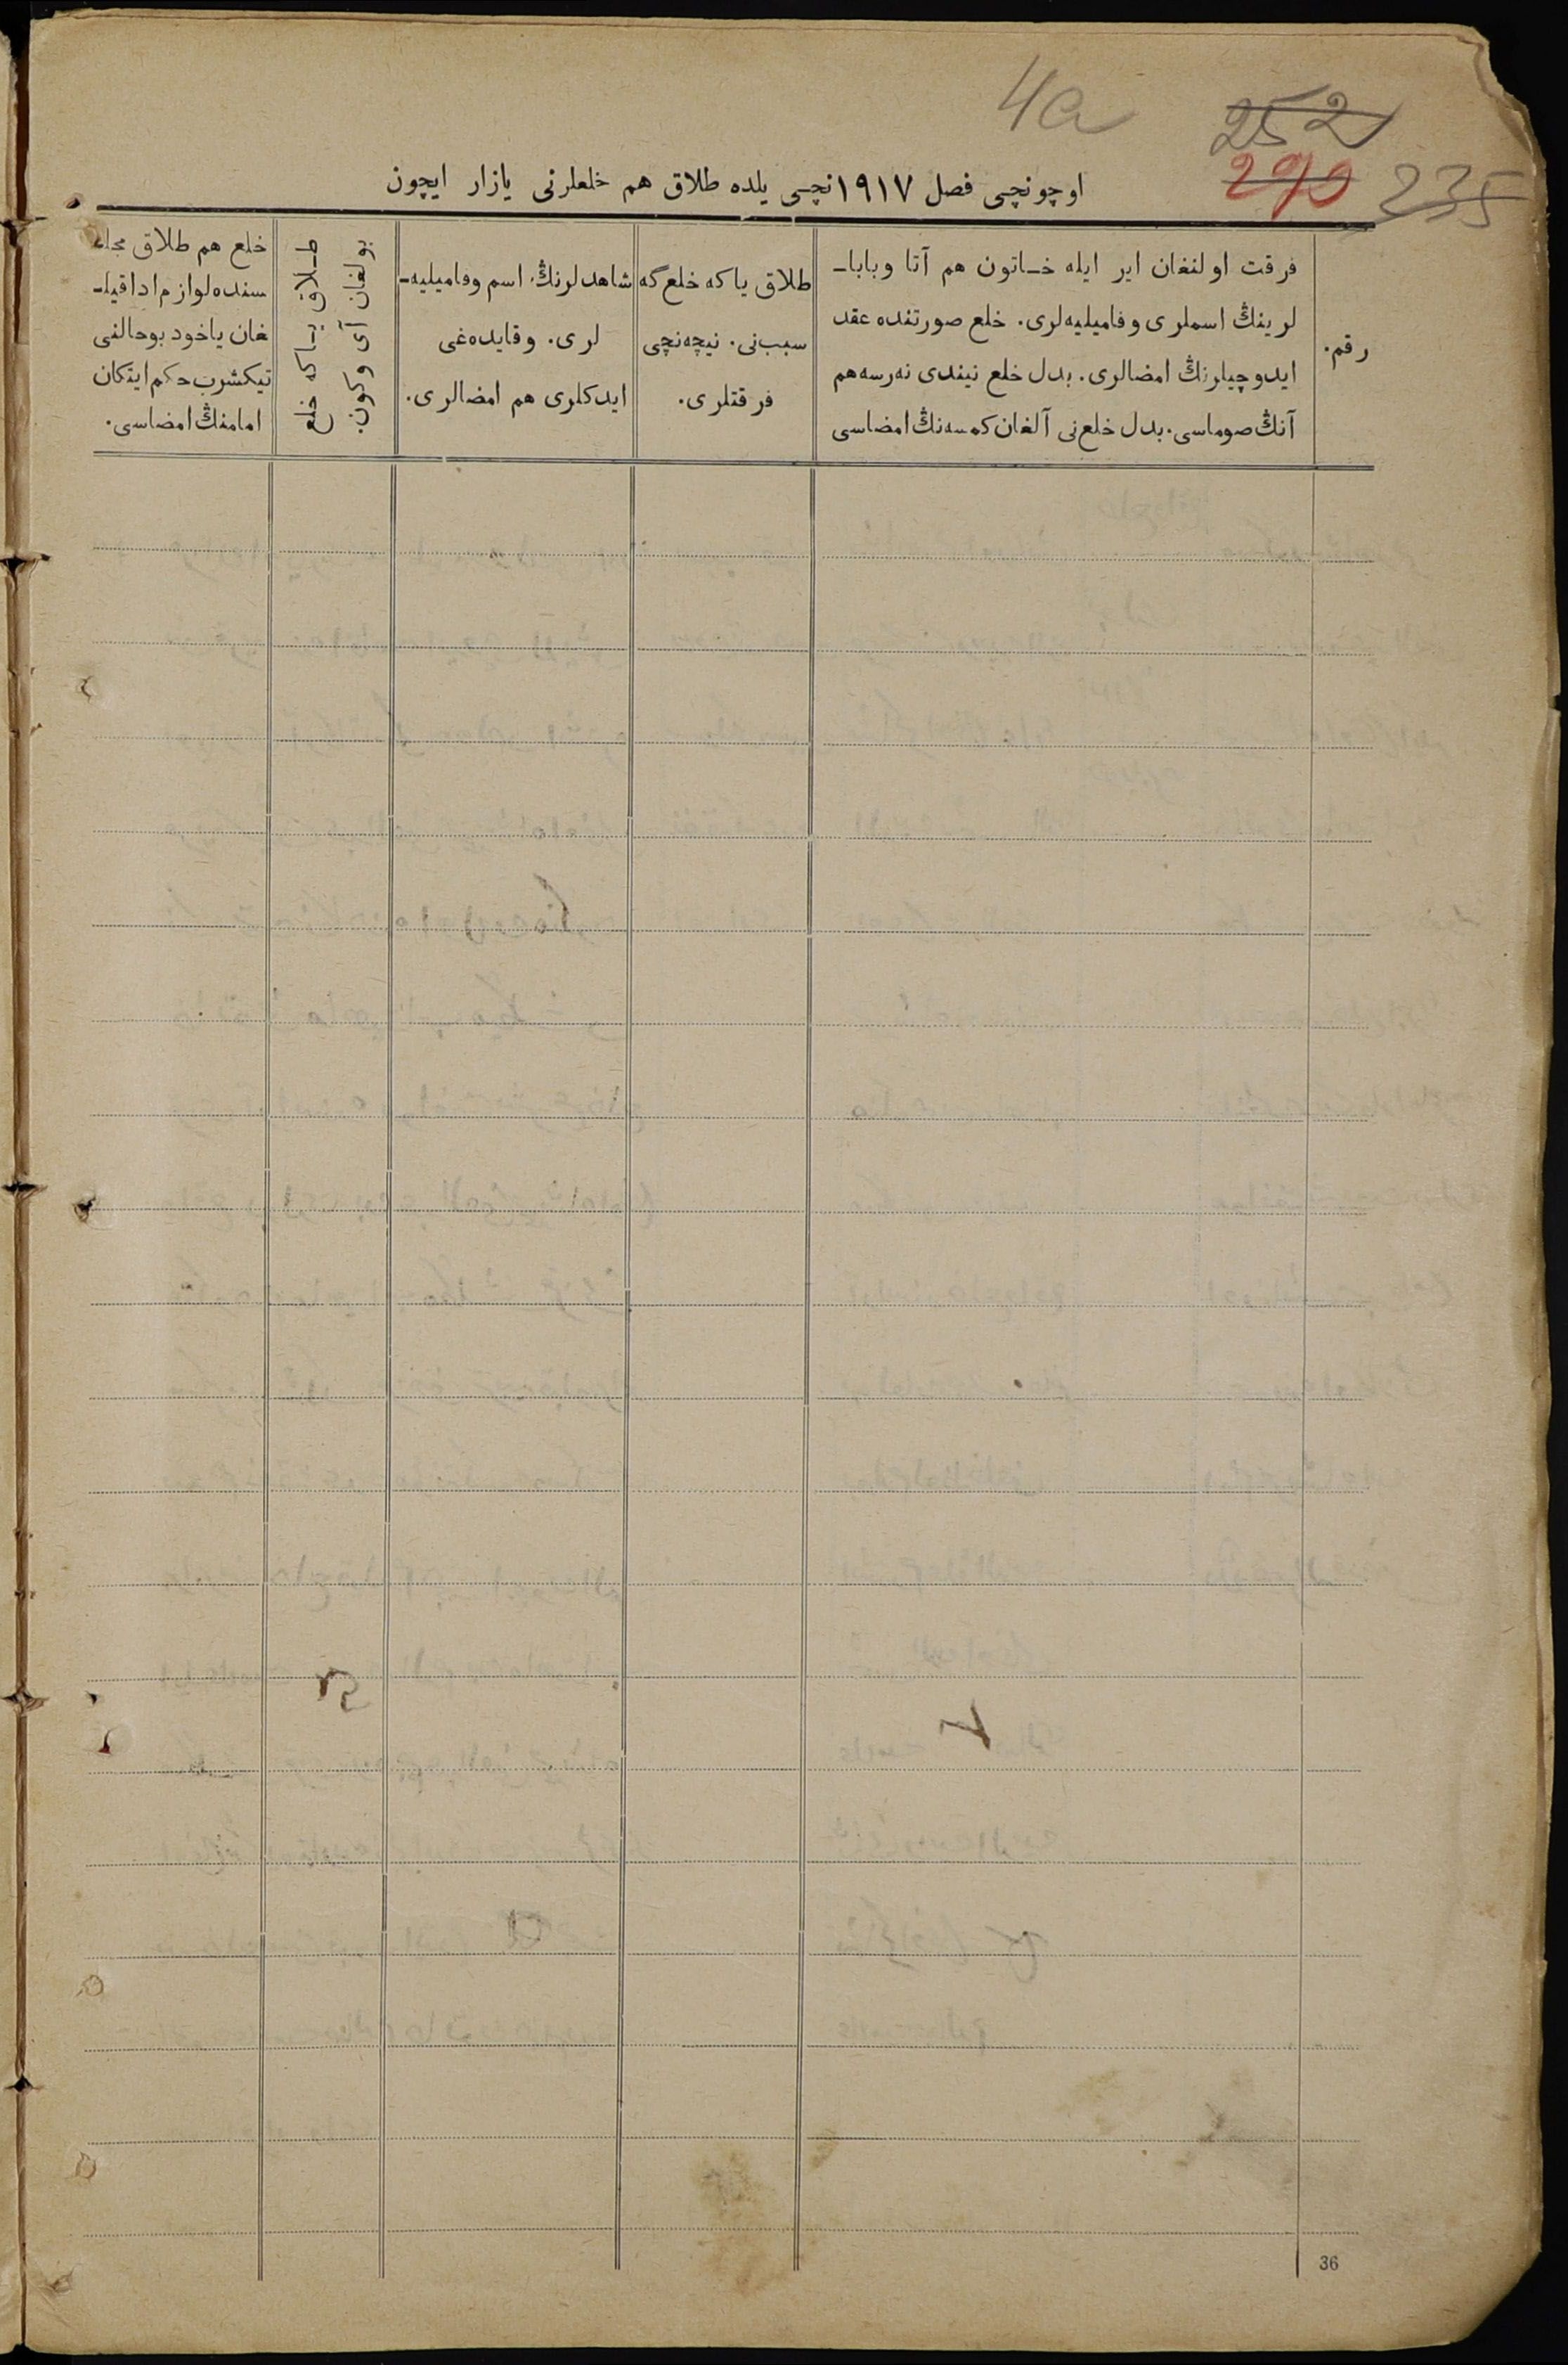 4a
252
290 235
اوچونچى فصل ١٩١٧نچى يلده طلاق هم خلعلرنى يازار ايچون
رقم.
فرقت اولنغان اير ايله خـاتون هم آتا وبابا-
لرينڭ اسملرى وفاميليه‌لرى. خلع صورتنده عقد
ايدوچيلرنڭ امضالرى. بدل خلع نيندى نه‌رسه هم
آنڭ صوماسى. بدل خلع‌نى آلغان كمسه‌نڭ امضاسى
طلاق ياكه خلع‌گه
سبب‌نى. نيچه‌نچى
فرقتلرى.
شاهدلرنڭ اسم وفاميليه-
لرى. وقايده‌غى
ايدكلرى هم امضالرى.
طـلاق يـاكه خلع
بولغان آى وكون.
خلع هم طلاق مجلـ
سنده لوازم ادا قيلـ
غان ياخود بوحالنى
تيكشرب حكم ايتكان
امامنڭ امضاسى.
36